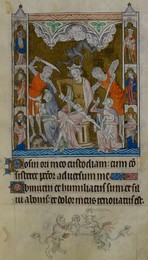 Posui ori meo custodiam: cum cō
sisteret aduersum me
Obmutui et humiliatus sum et si
lui a bonis: et dolor meus renouatus est.